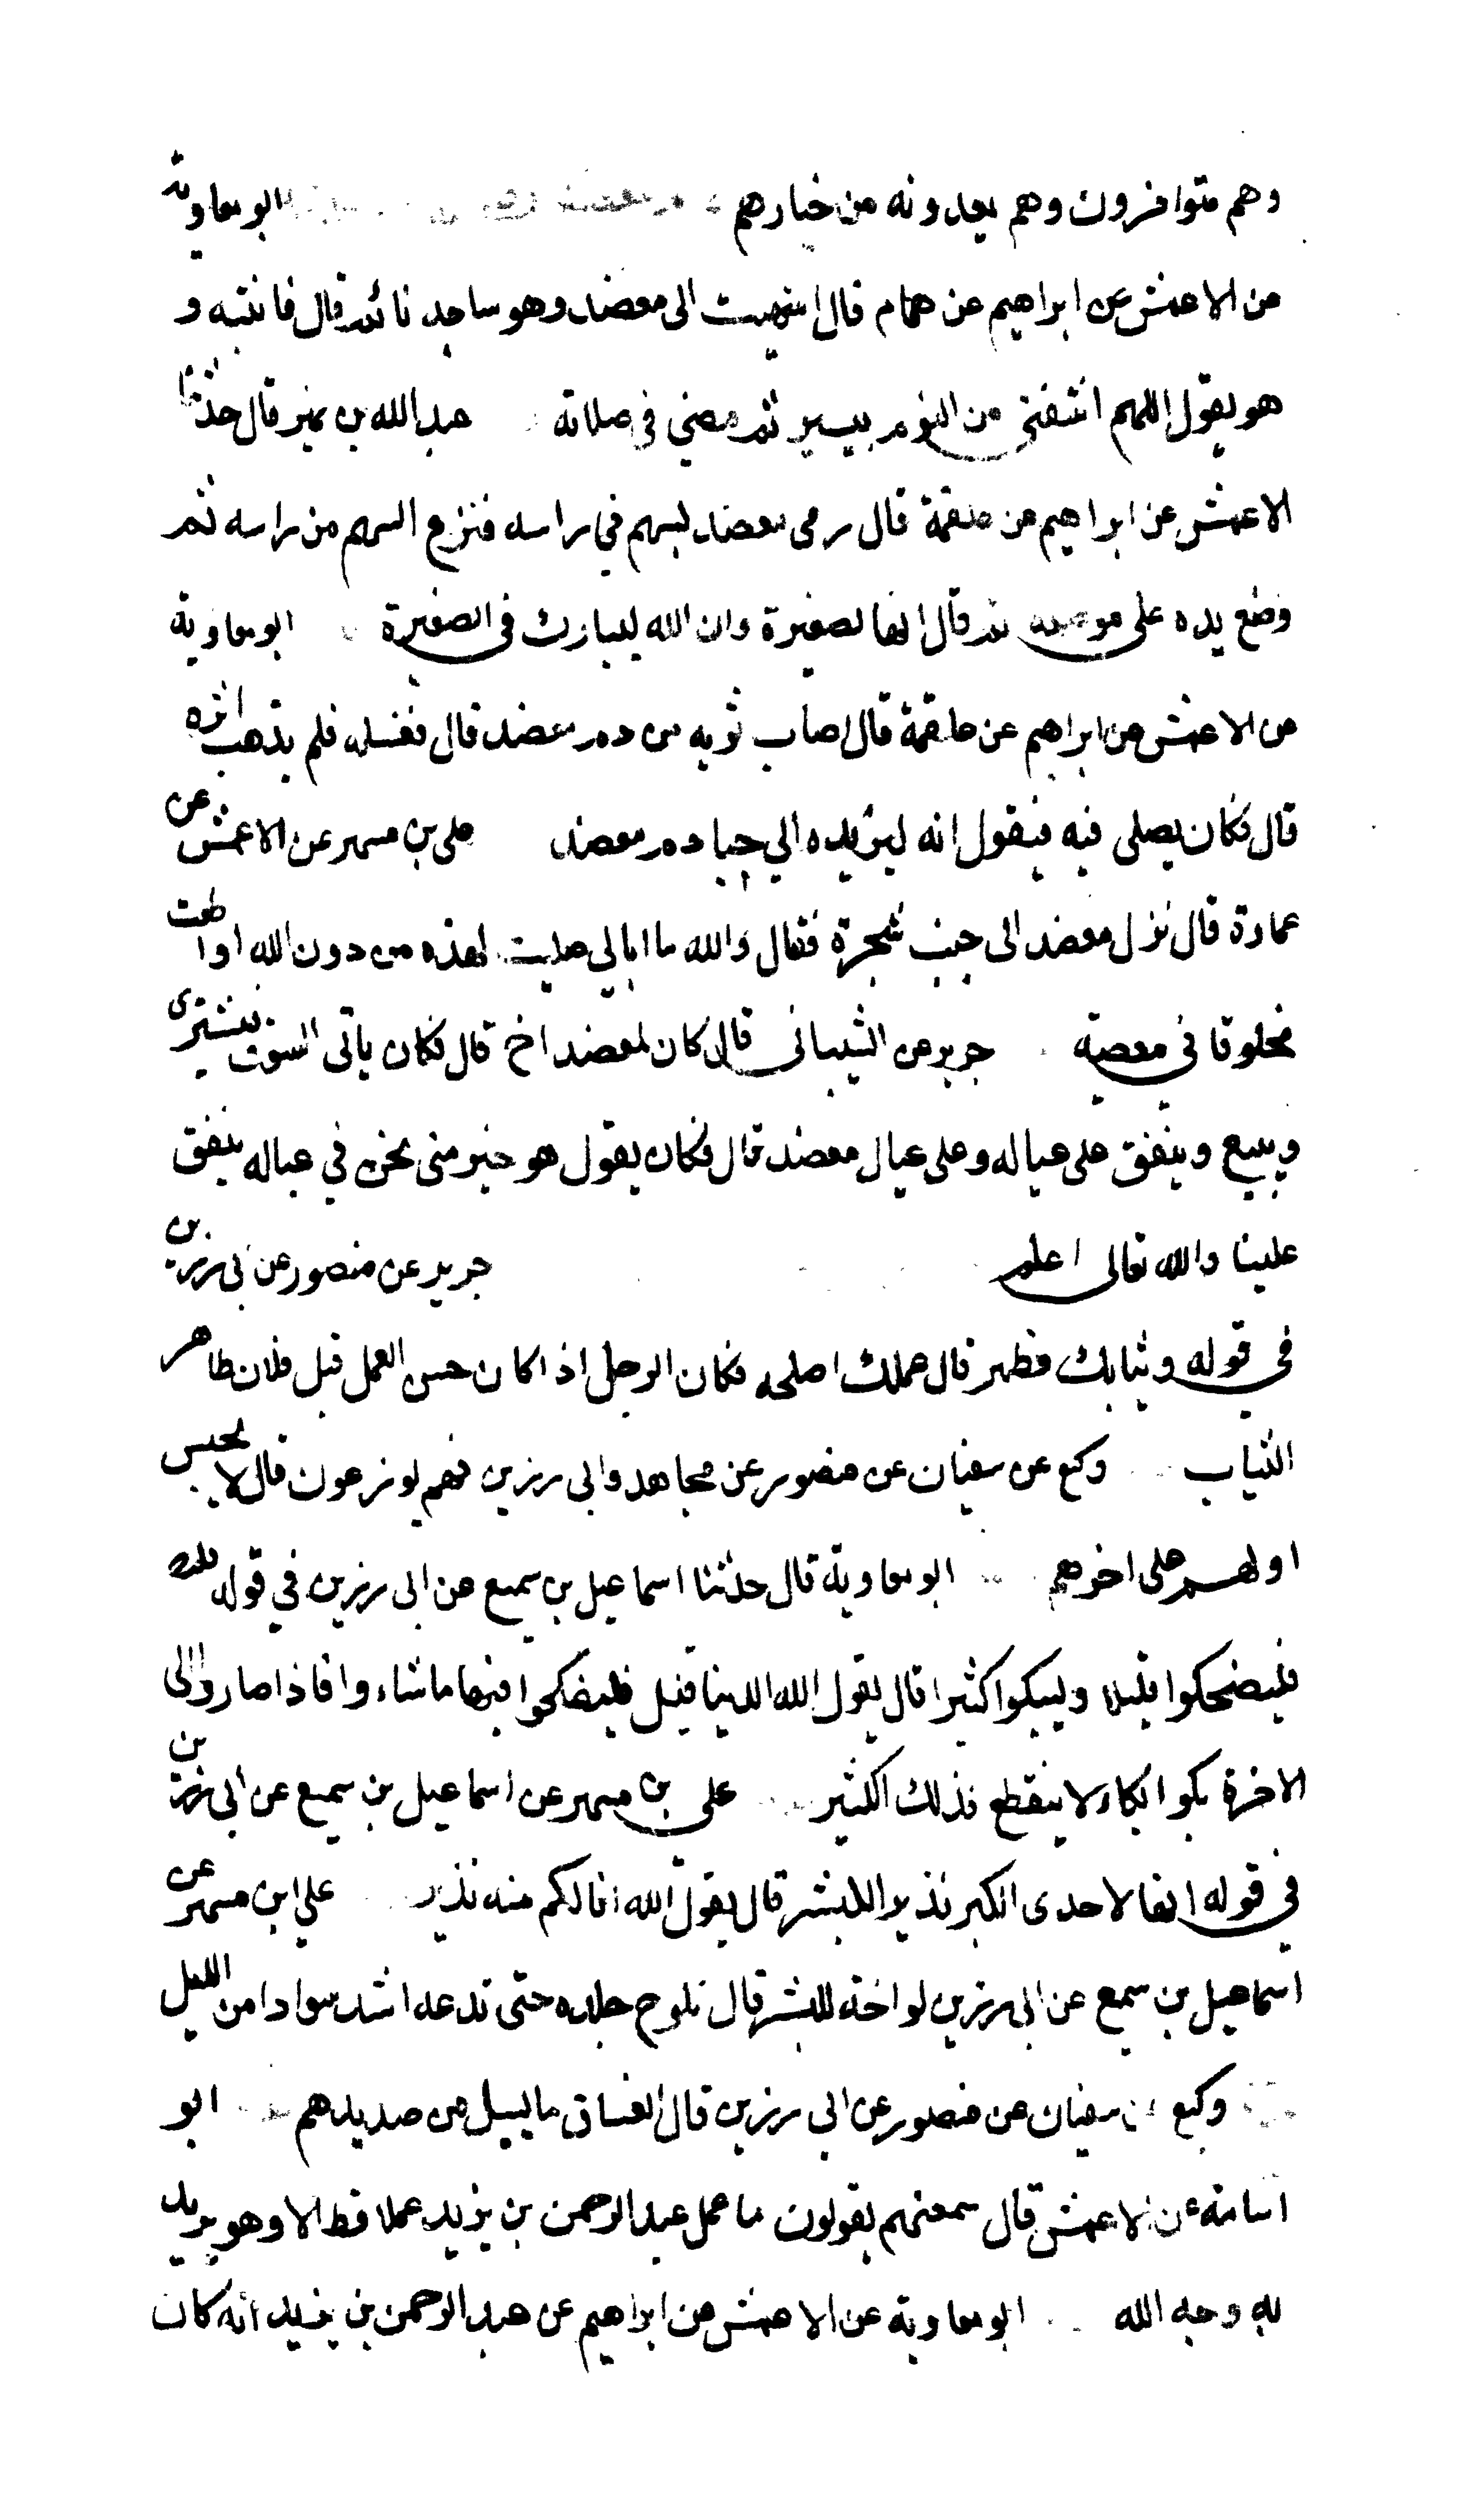 وهم متوافرون وهم يعدونه من خيارهم ابو معاوية
عن الاعمش عن ابراهيم عن همام قال انتهيت الى معضد وهو ساجد نائم قال فانتبه و
هو يقول اللهم اشفني من النوم بيسير ثم مضى في صلاته عبد الله بن نمير قال حدثنا
الاعمش عن ابراهيم عن علقمة قال رمى معضد بسهم في راسه فنزع السهم من راسه ثم
وضع يده على موضعه ثم قال انها لصغيرة وان الله ليبارك في الصغيرة ابو معاوية
عن الاعمش عن ابراهيم عن علقمة قال اصاب ثوبه من دم معضد قال فغسله فلم يذهب اثره
قال فكان يصلى فيه فيقول انه ليزيده الي حبا دم معضد على بن مسهر عن الاعمش عن
عمارة قال نزل معضد الى جنب شجرة فقال والله ما ابالي صليت لهذه من دون الله او اطعت
مخلوقا في معصية جرير عن الشيباني قال كان لمعضد اخ قال فكان ياتى السوق فيشترى
ويبيع وينفق على عياله وعلى عيال معضد قال فكان يقول هو خير منى نحن في عياله ينفق
علينا والله تعالى اعلم جرير عن منصور عن ابي رزين
في قوله وثيابك فطهر قال عملك اصلحه فكان الرجل اذا كان حسن العمل قيل فلان طاهر
الثياب وكيع عن سفيان عن منصور عن مجاهد وابى رزين فهم يوزعون قال لا يحبس
اولهم على اخرهم ابو معاوية قال حدثنا اسماعيل بن سميع عن ابى رزين في قوله
فليضحكوا قليلا وليبكوا كثيرا قال يقول الله الدنيا قليل فليضحكوا فيها ما شاءوا فاذا صاروا الى
الاخرة بكوا بكاء لا ينقطع فذلك الكثير على بن مسهر عن اسماعيل بن سميع عن ابى رزين
في قوله انها لاحدى الكبر نذيرا للبشر قال يقول الله انا لكم منه نذير علي ابن مسهر عن
اسماعيل بن سميع عن ابى رزين لواحة للبشر قال تلوح جلده حتى تدعه اشد سوادا من الليل
وكيع عن سفيان عن منصور عن ابى رزين قال الغساق ما يسيل من صديدهم ابو
اسامة عن الاعمش قال سمعتهم يقولون ما عمل عبد الرحمن بن يزيد عملا قط الا وهو يريد
به وجه الله ابو معاوية عن الاعمش عن ابراهيم عن عبد الرحمن بن يزيد انه كان